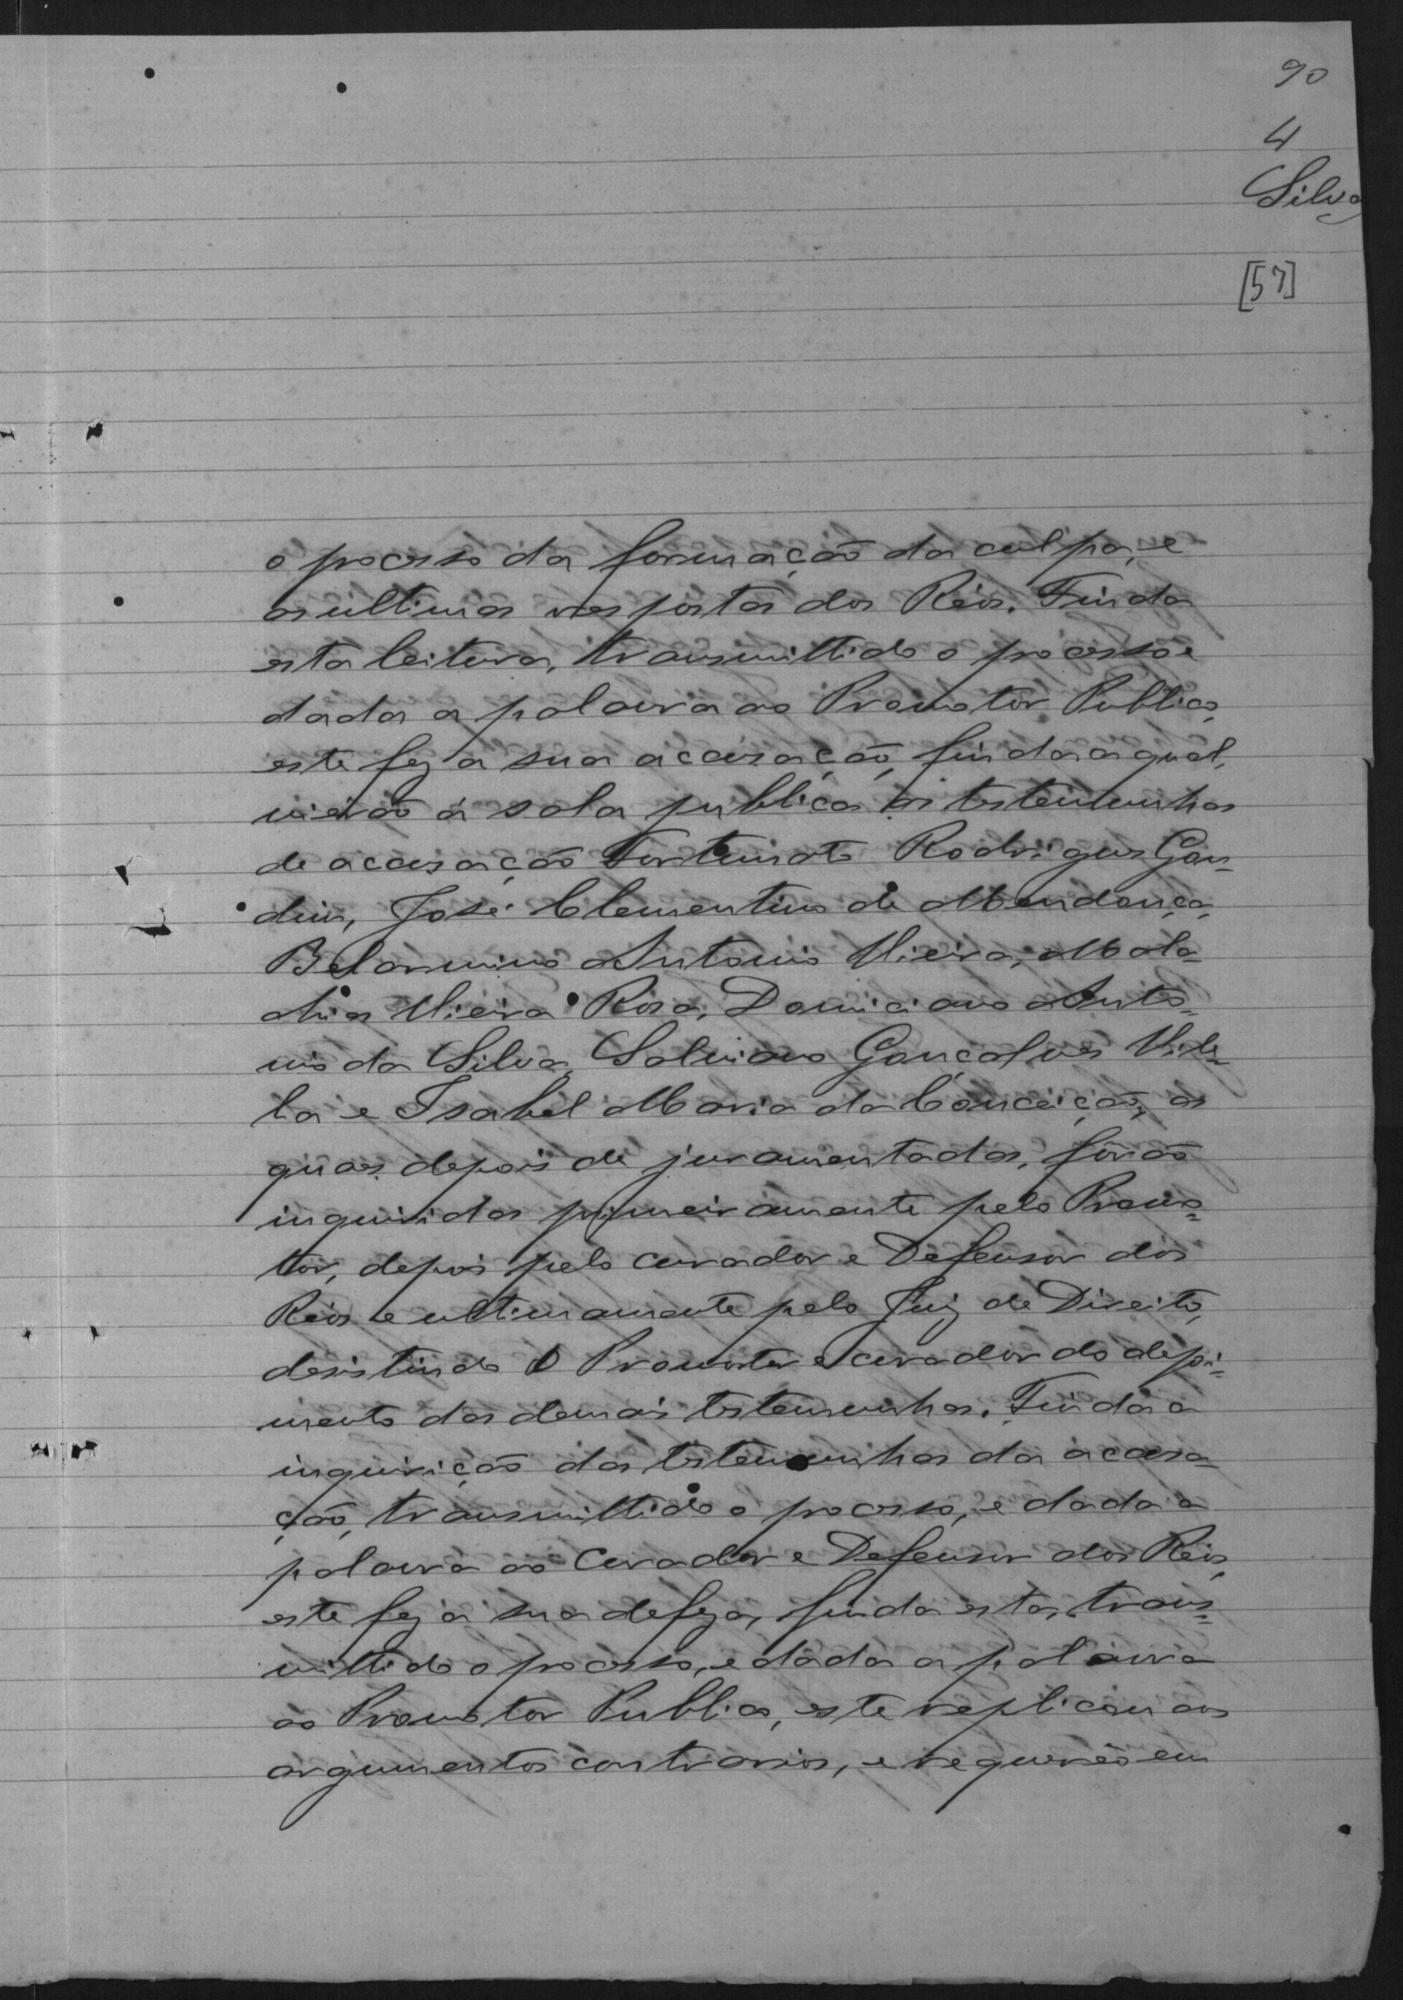 90
4
Silva
[57]
o processo da formação da culpa, e
as ultimas respostas dos Réos. Finda
esta leitura, transmittido o processo e
dada a palavra ao Promotor Publico,
este fez a sua accusação, finda a qual,
vierão á sala publica as testemunhas
de accusação Fortunato Rodrigues Gon=
dim, José Clementino de Mendonça,
Belarmino Antonio Vieira, Mala
chias Vieira Rosa, Domiciano Anto=
nio da Silva, Salviano Gonçalves Vile=
la e Isabel Maria da Conceição, as
quaes, depois de juramentadas, fôrão
inquiridas primeiramente pelo Promo=
tor, depois pelo Curador e Defensor dos
Réos e ultimamente pelo Juiz de Direito,
desistindo o Promotor e curador do depoi=
mento das demais testemunhas. Finda a
inquirição das testemunhas da accusa=
ção, transmittido o processo, e dada a
palavra ao Curador e Defensor dos Réos,
este fez a sua defeza, finda esta, trans=
mittido o processo, e dada a palavra
ao Promotor Publico, este replicou aos
argumentos contrarios, e requereo em